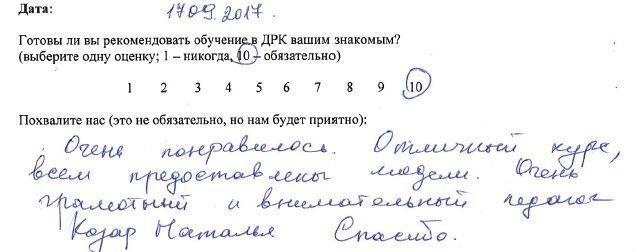 Дата: 17.09.2017.
Готовы ли вы рекомендовать обучение в ДРК вашим знакомым?
(выберите одну оценку; 1 – никогда, 10 – обязательно)
1 2 3 4 5 6 7 8 9 10
Похвалите нас (это не обязательно, но нам будет приятно):
Очень понравилось. Отличный курс,
всем предоставлены модели. Очень
грамотный и внимательный педагог
Козар Наталья Спасибо.